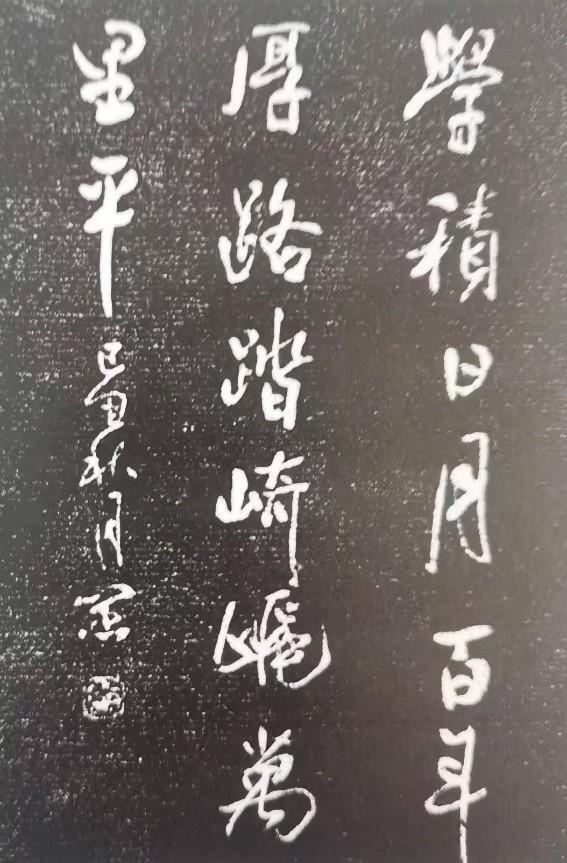 學積日月百年
厚路踏崎嶇萬
里平 己丑秋月